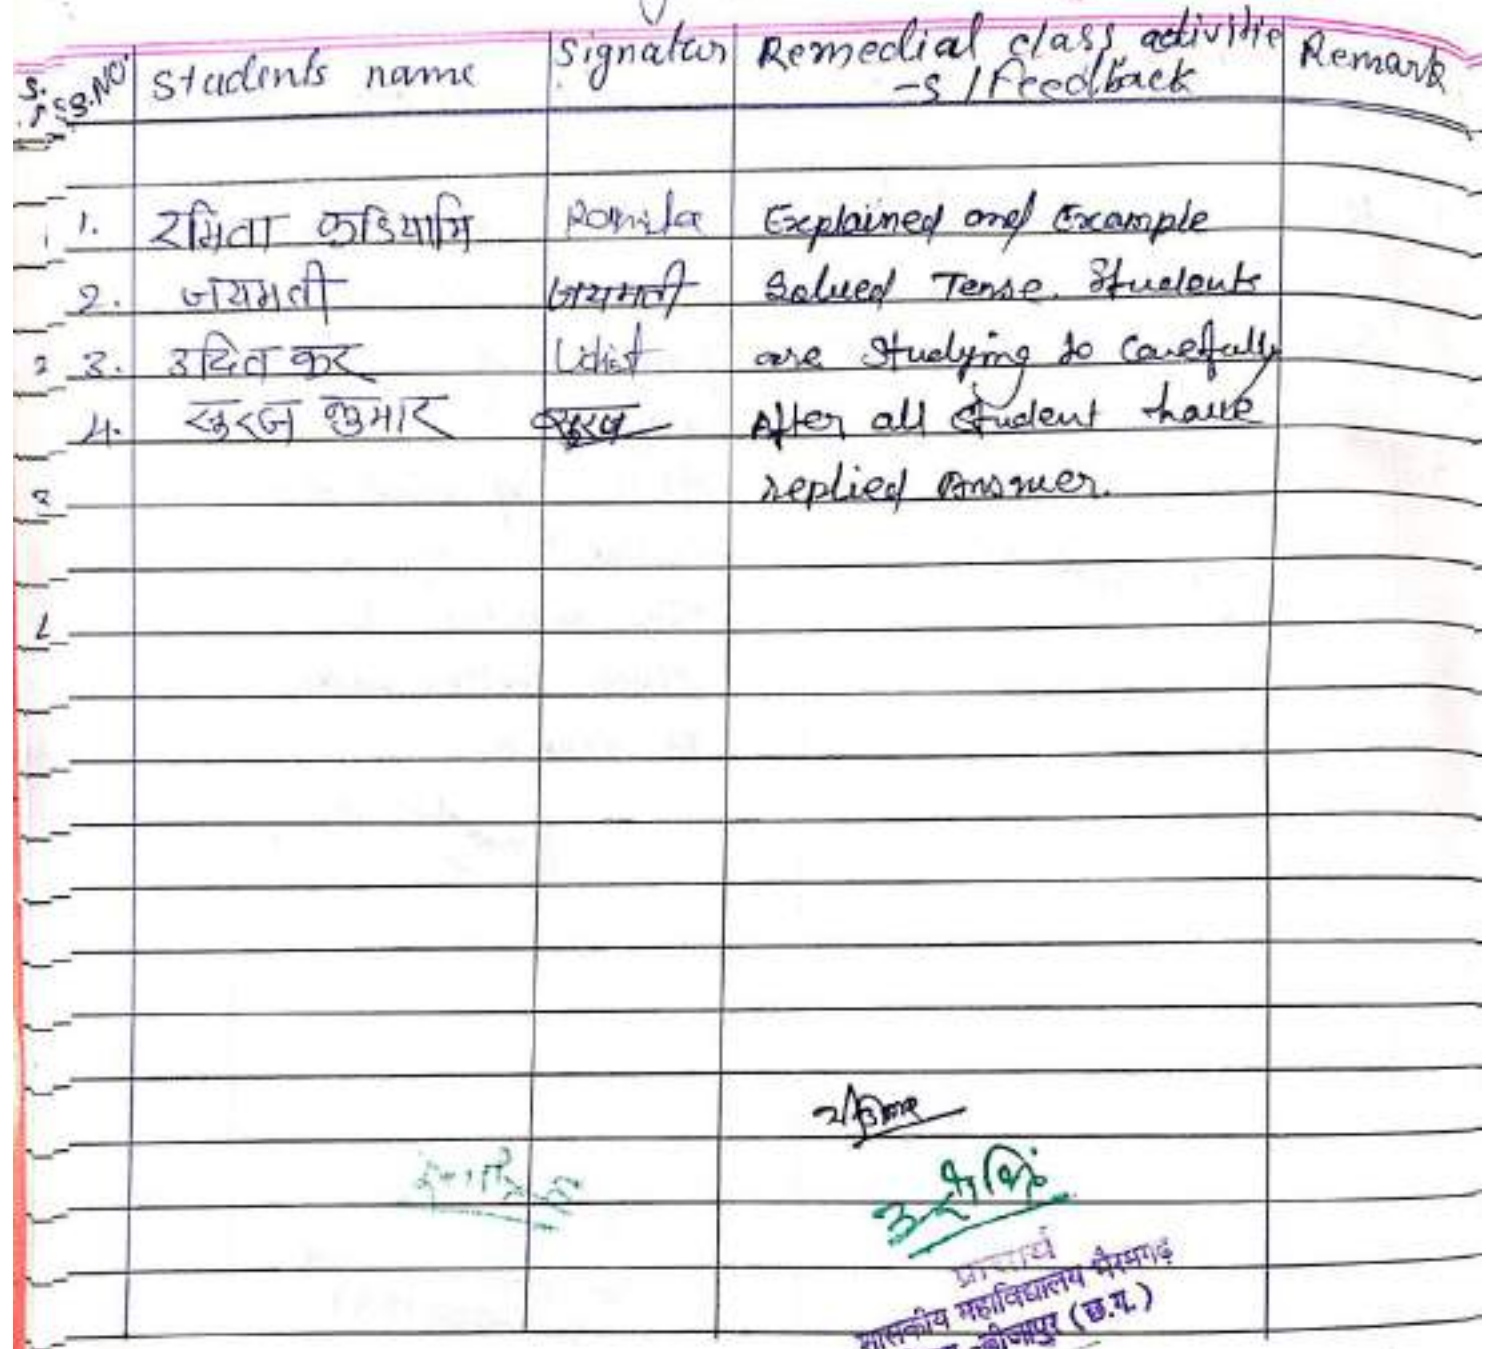 S.NO Students name Signatur Remedial class activitie Remark
-s / Feedback
1. रमिता कडियामि Ramila Explained and Example
2. जयमती जयमती Solued Tense. Students
3. उदित कर Udist are Studying so Carefully
4. सुरज कुमार सुरज After all student have
replied Answer.
प्राचार्य
शासकीय महाविद्यालय भैरमगढ़
बीजापुर (छ.ग.)